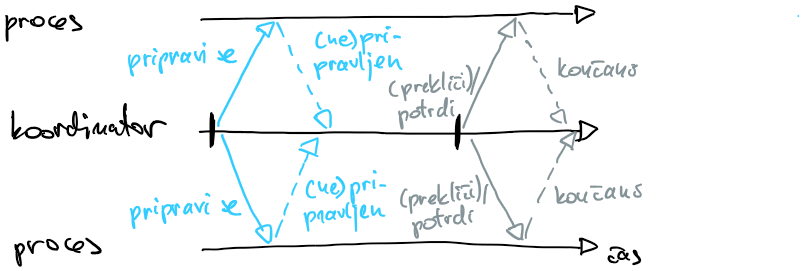 proces
pripravi se
(ne)pri-
pravljen
(prekliči)/
potrdi
končano
koordinator
pripravi se
(ne)pri-
pravljen
(prekliči)/
potrdi
končano
proces
čas